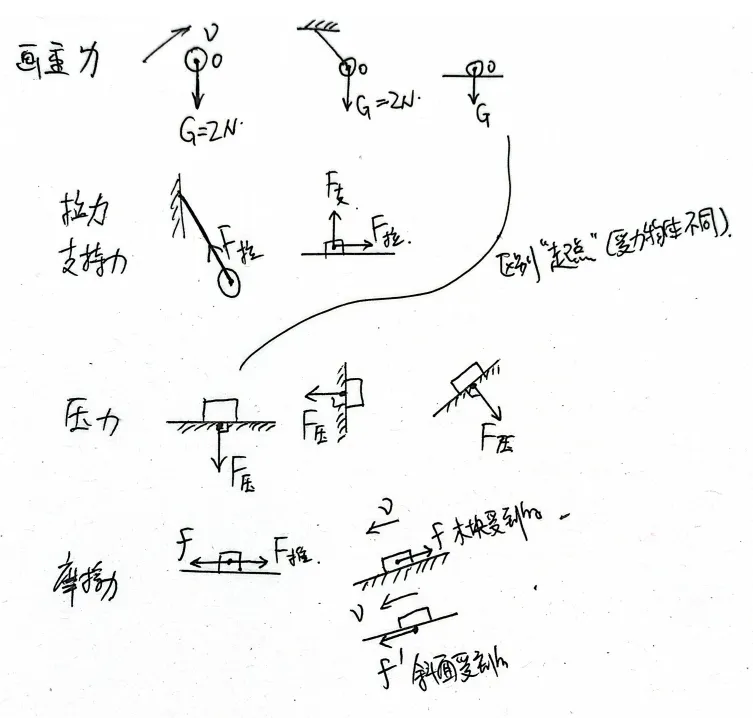 画重力
v
O
G=2N.
O
G=2N.
O
G
拉力
支持力
F拉
F支.
F拉.
区别"起点"(受力物体不同).
压力
F压
F压
F压
摩擦力
f
F推.
v
f 木块受到的
v
f' 斜面受到的